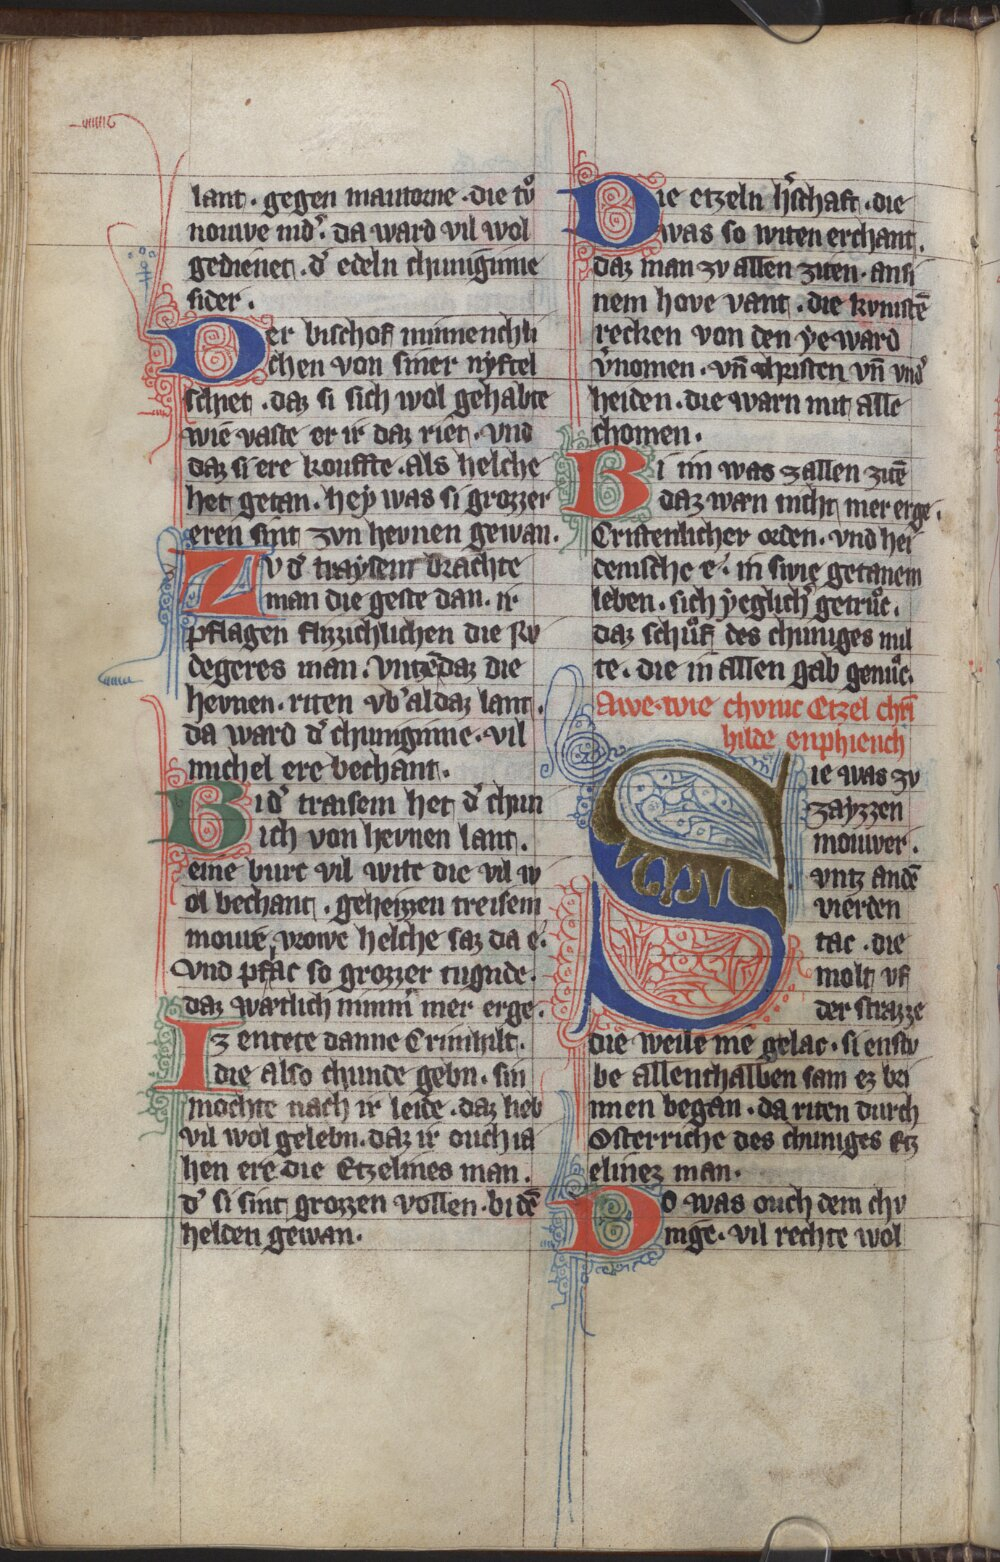 lant · gegen mautorne · die tvͦ
nouwe nidˀ. da ward vil wol
gedienet. dˀ edeln chuniginne
sider .
Der bischof minnenchli
chen von siner nyftel
schiet . daz si sich wol gehabte
wie vaste er ir daz riet · vnd
daz si ere kouffte . als helche
het getan . hey was si grozzer
eren sint zvn hevnen gewan .
Zv dˀ traysem brachte
man die geste dan . ir
pflagen flizzichlichen die Rv
degeres man . vntz daz die
hevnen · riten vbˀ al daz lant .
da ward dˀ chuniginne · vil
michel ere bechant .
Bi dˀ traisem het dˀ chun
ich von hevnen lant .
eine burc vil wite die vil w
ol bechant . geheizzen treisem
mouwē . vrowe helche saz da e .
vnd pflac so grozzer tugnde .
daz wærtlich nimmˀ mer erge .
Iz entete danne Crimhilt .
die also chunde gebn . sin
mochte nach ir leide . daz lieb
vil wol gelebn . daz ir ouch ia
hen ere die Etzelines man .
dˀ si sint grozzen vollen · bi dē
helden gewan .
Die etzeln hˀschaft . die
was so witen erchant .
daz man zv allen ziten · an si
nem hove vant . die kvnistē
recken von den ye ward
vˀnomen . vn̄ christen vn̄ vndˀ
heiden . die warn mit alle
chomen .
Bi im was zallen zitē
daz wæn nicht mer erge .
Cristenlicher orden . vnd hei
denische e . in swie getanem
leben . sich yeglichˀ getruͦc .
daz schuͦf des chuniges mil
te . die in allen gab genuͦc .
Awe · wie chvnic Etzel chri
hilde enphiench
Sie was zv
zayzzen
mouwer .
vntz an dē
vierden
tac . die
molt vf
der strazze
die weile nie gelac . si enstv
be allenthalben sam ez bri
nnen began . da riten durch
Osterriche des chuniges Etz
elinez man .
Do was ouch dem chv
nige . vil rechte wol